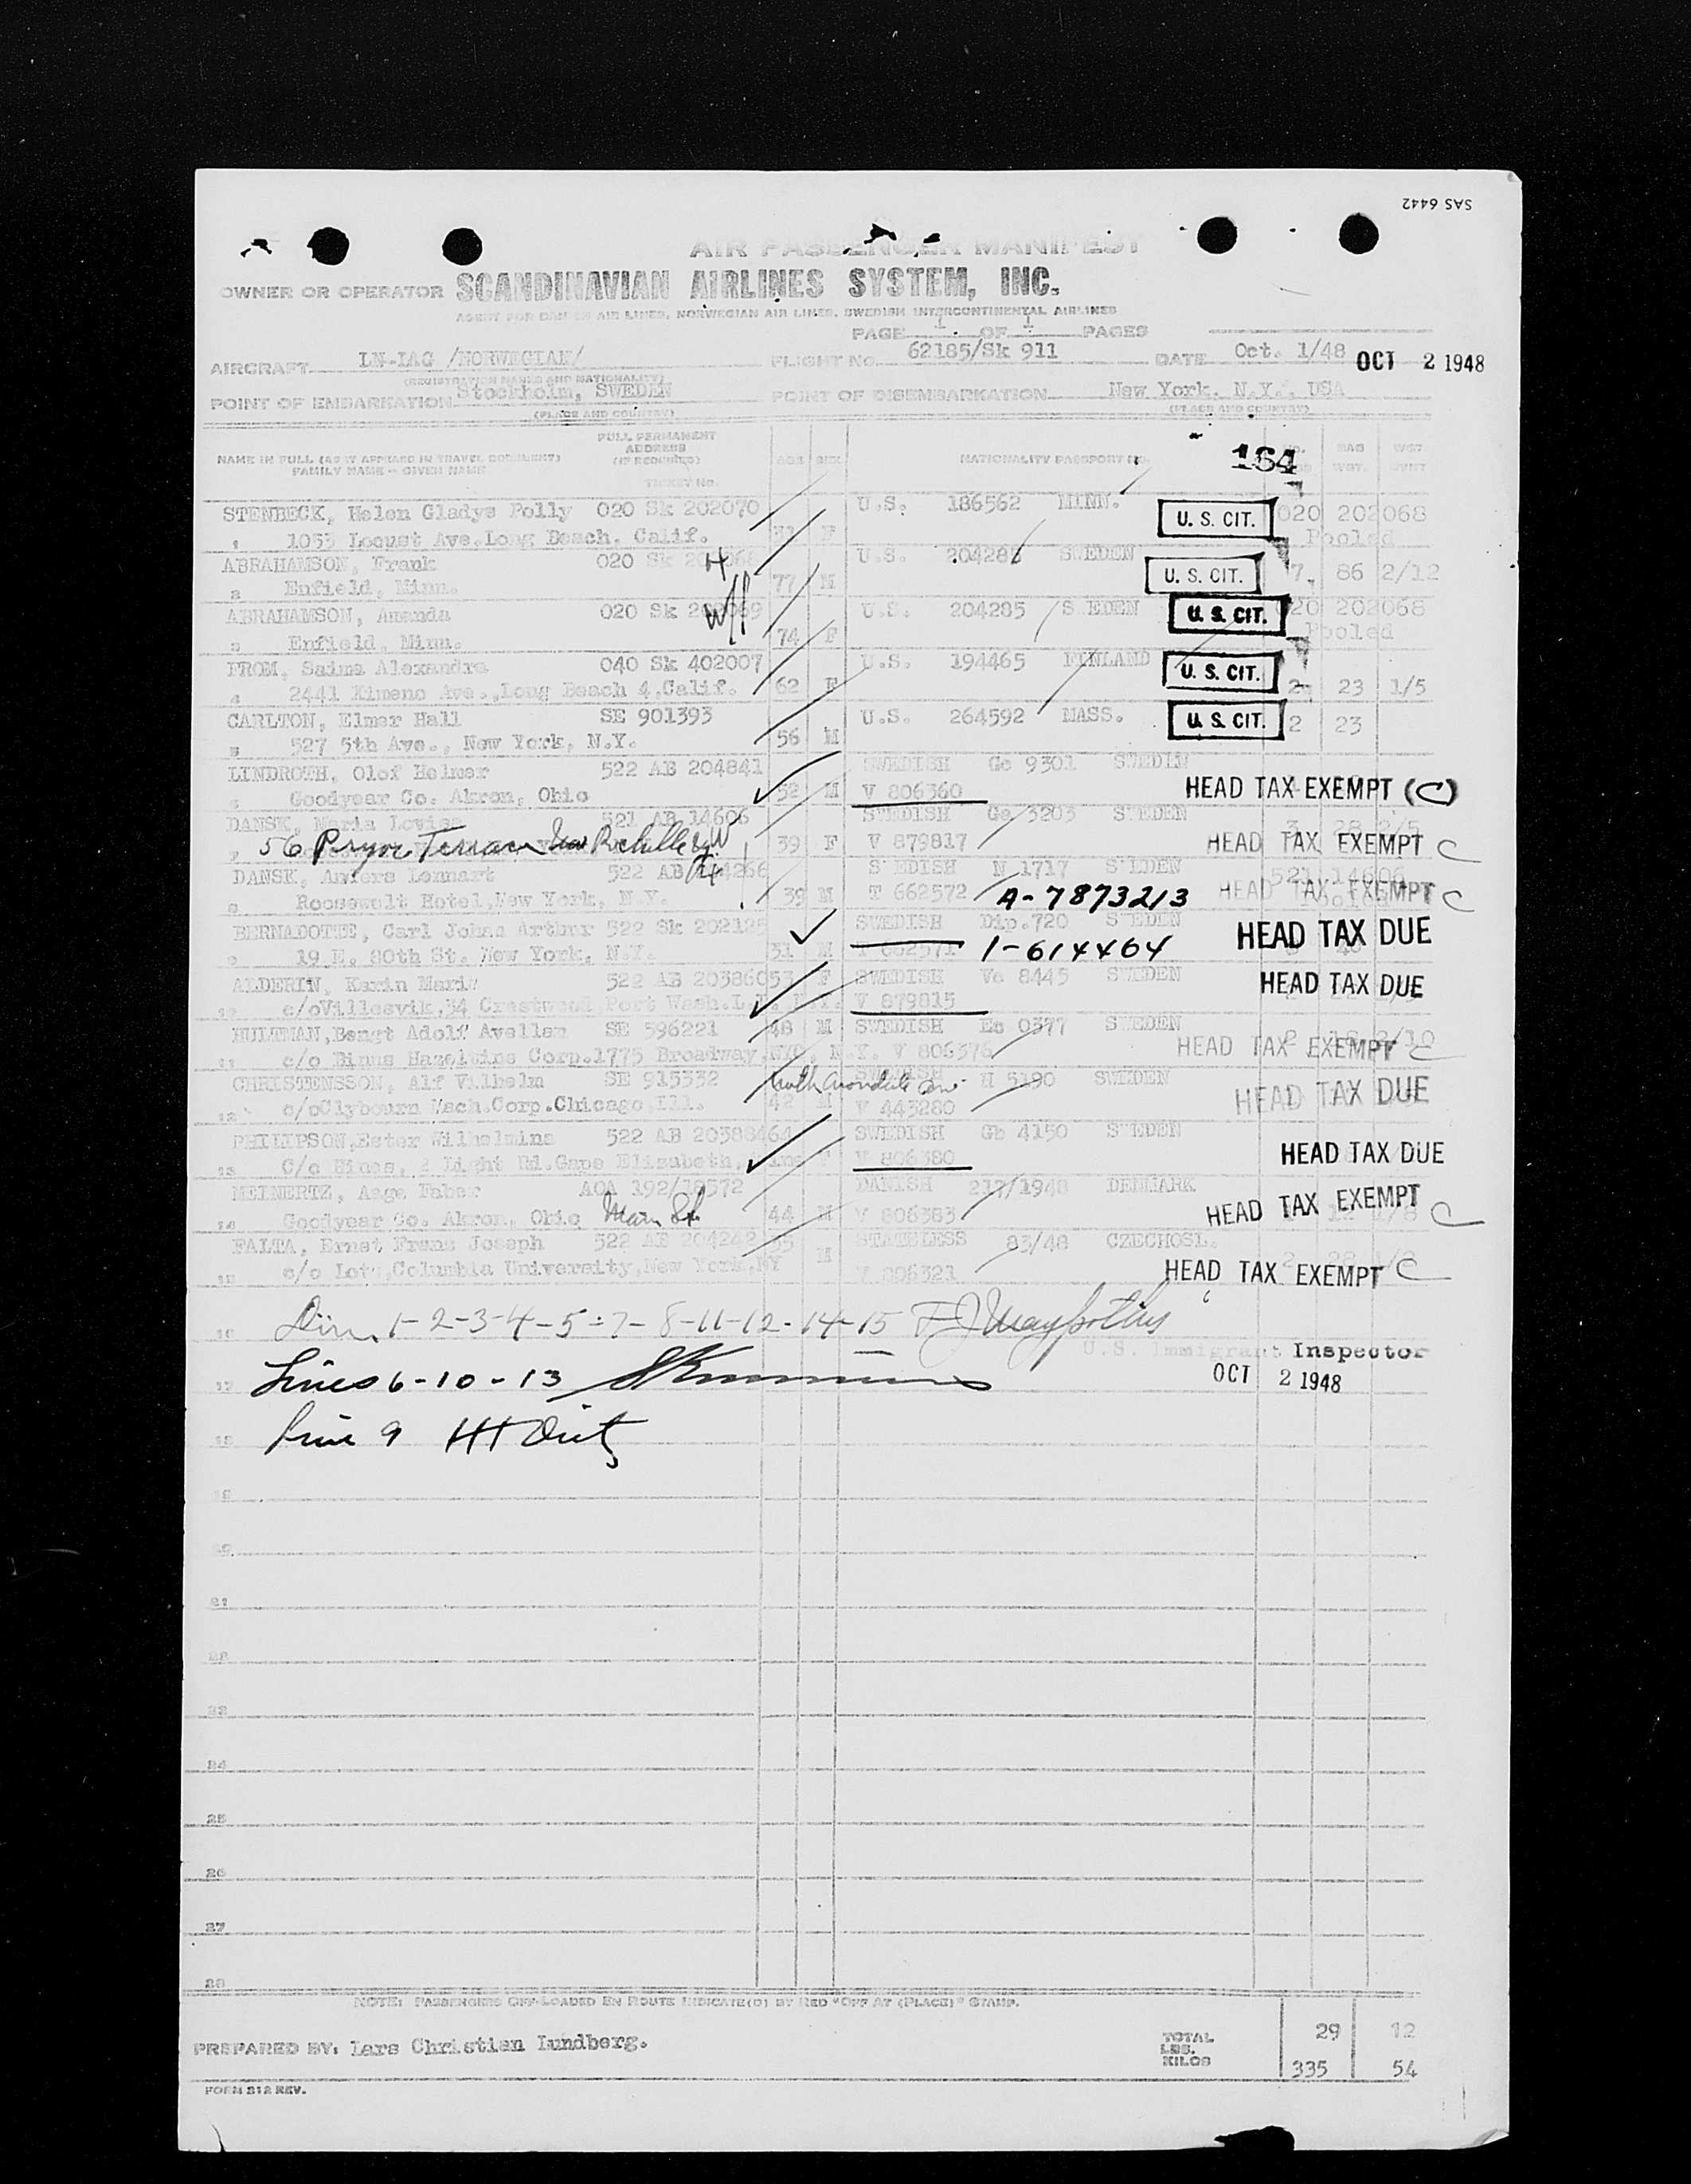 SAS 6442
AIR PASSENGER MANIFEST
OWNER OR OPERATOR SCANDINAVIAN AIRLINES SYSTEM, INC.
AGENT FOR DANISH AIR LINES, NORWEGIAN AIR LINES, SWEDISH INTERCONTINENTAL AIRLINES
PAGE 1 OF 1 PAGES
AIRCRAFT LN-IAG /NORWEGIAN/ FLIGHT No. 62185/Sk 911 DATE Oct. 1/48 OCT 2 1948
(REGISTRATION MARKS AND NATIONALITY)
POINT OF EMBARKATION Stockholm, SWEDEN POINT OF DISEMBARKATION New York, N.Y., USA
(PLACE AND COUNTRY) (PLACE AND COUNTRY)
NAME IN FULL (AS IT APPEARS IN TRAVEL DOCUMENT) FAMILY NAME - GIVEN NAME FULL PERMANENT ADDRESS (IF REQUIRED) TICKET No. AGE SEX NATIONALITY PASSPORT No. 164 BAG WGT.
STENBECK, Helen Gladys Polly 020 Sk 202070 U.S. 186562 MINN. U. S. CIT. 020 202068
1 1053 Locust Ave.Long Beach. Calif. F Pooled
ABRAHAMSON, Frank 020 Sk U.S. SWEDEN U. S. CIT.
2 Enfield, Minn. 77 M 7 86 2/12
ABRAHAMSON, Amanda 020 Sk U.S. 204285 SWEDEN U. S. CIT. 020 202068
3 Enfield, Minn. 74 F Pooled
FROM, Saima Alexandra 040 Sk 402007 U.S. 194465 FINLAND U. S. CIT.
4 2441 Ximeno Ave.,Long Beach 4,Calif. 62 F 2 23 1/5
CARLTON, Elmer Hall SE 901393 U.S. 264592 MASS. U. S. CIT. 2 23
5 527 5th Ave., New York, N.Y. 56 M
LINDROTH, Olof Helmer 522 AB 204841 SWEDISH Ge 9301 SWEDEN
6 Goodyear Co. Akron, Ohio 52 M V 806360 HEAD TAX EXEMPT (C)
DANSK, Maria Lovisa 521 AB 14606 SWEDISH Ge 3203 SWEDEN
7 56 Pryor Terrace New Rochelle 39 F V 879817 HEAD TAX EXEMPT C
DANSK, Anders Lennart 522 AB SWEDISH N 1717 SWEDEN 521 14606
8 Roosevelt Hotel,New York, N.Y. 39 M T 662572 A-7873213 HEAD TAX EXEMPT C
BERNADOTTE, Carl Johan Arthur 522 Sk 202125 SWEDISH Dip.720 SWEDEN HEAD TAX DUE
9 19 E. 80th St. New York, N.Y. 31 M 1-614464
ALDERIN, Karin Maria 522 AB 203860 53 F SWEDISH Ve 8445 SWEDEN HEAD TAX DUE
10 c/oVillesvik,34 Crestwood Port Wash.L.I. N.Y. V 879815
HULTMAN,Bengt Adolf Avellan SE 596221 48 M SWEDISH Es 0377 SWEDEN
11 c/o Binus Hazeltine Corp.1775 Broadway,NYC, N.Y. V 806376 HEAD TAX EXEMPT C
CHRISTENSSON, Alf Vilhelm SE 915332 SWEDISH H 5190 SWEDEN
12 c/oClybourn Mach.Corp.Chicago,Ill. 42 M V 443280 HEAD TAX DUE
PHILIPSON,Ester Wilhelmina 522 AB 203884 64 SWEDISH Gb 4150 SWEDEN
13 C/o Hines, 2 Light Rd.Cape Elizabeth, F V 806380 HEAD TAX DUE
MEINERTZ, Aage Faber AOA 192/18572 DANISH 217/1948 DENMARK
14 Goodyear Co. Akron, Ohio Main St. 44 M V 806383 HEAD TAX EXEMPT C
FALTA, Ernst Franz Joseph 522 AB 204242 35 M STATELESS 83/48 CZECHOSL.
15 c/o Lotz,Columbia University,New York,NY V 806321 HEAD TAX EXEMPT C
16 1-2-3-4-5-7-8-11-12-14-15
U.S. Immigrant Inspector
17 Lines 6-10-13 OCT 2 1948
18 Line 9
19
20
21
22
23
24
25
26
27
28
NOTE: PASSENGERS OFF-LOADED EN ROUTE INDICATE(D) BY RED "OFF AT (PLACE)" STAMP.
PREPARED BY: Lars Christian Lundberg. TOTAL 29 12
LBS.
KILOS 335 54
FORM 212 REV.